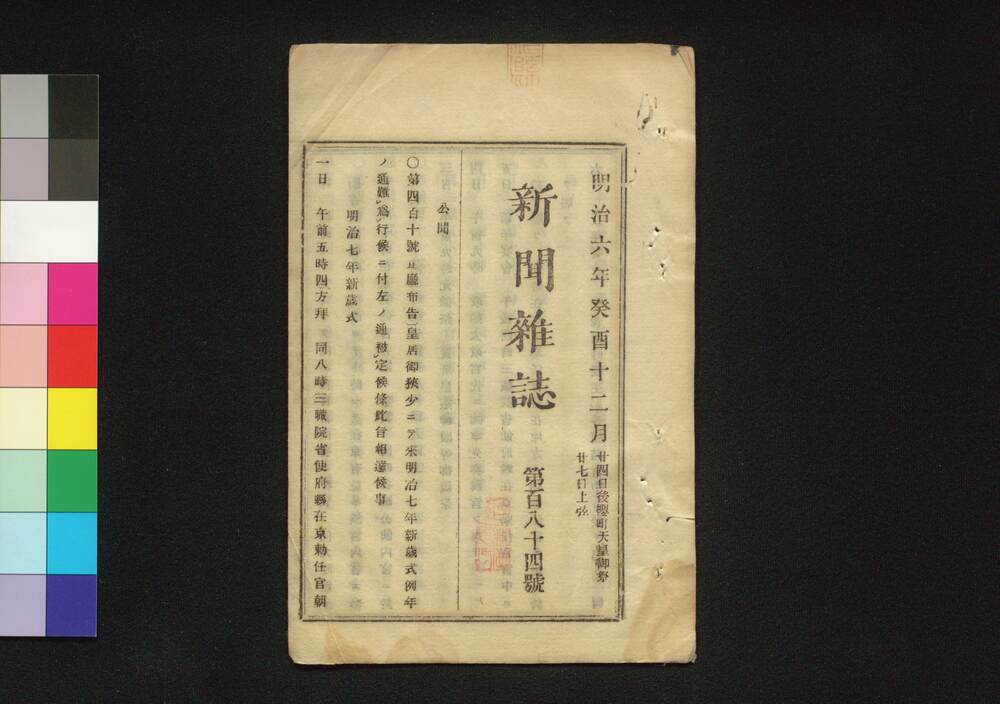 明治六年癸酉十二月
廿四日後櫻町天皇御祭
廿七日上弦
新聞雜誌
第百八十四號
公聞
〇第四百十號正廳布告皇居御狹少ニテ來明治七年新歲式例年
ノ通難爲行候ニ付左ノ通被定候條此旨相達候事
明治七年新歲式
一日 午前五時四方拜 同八時三職院省使府縣在京勅任官朝